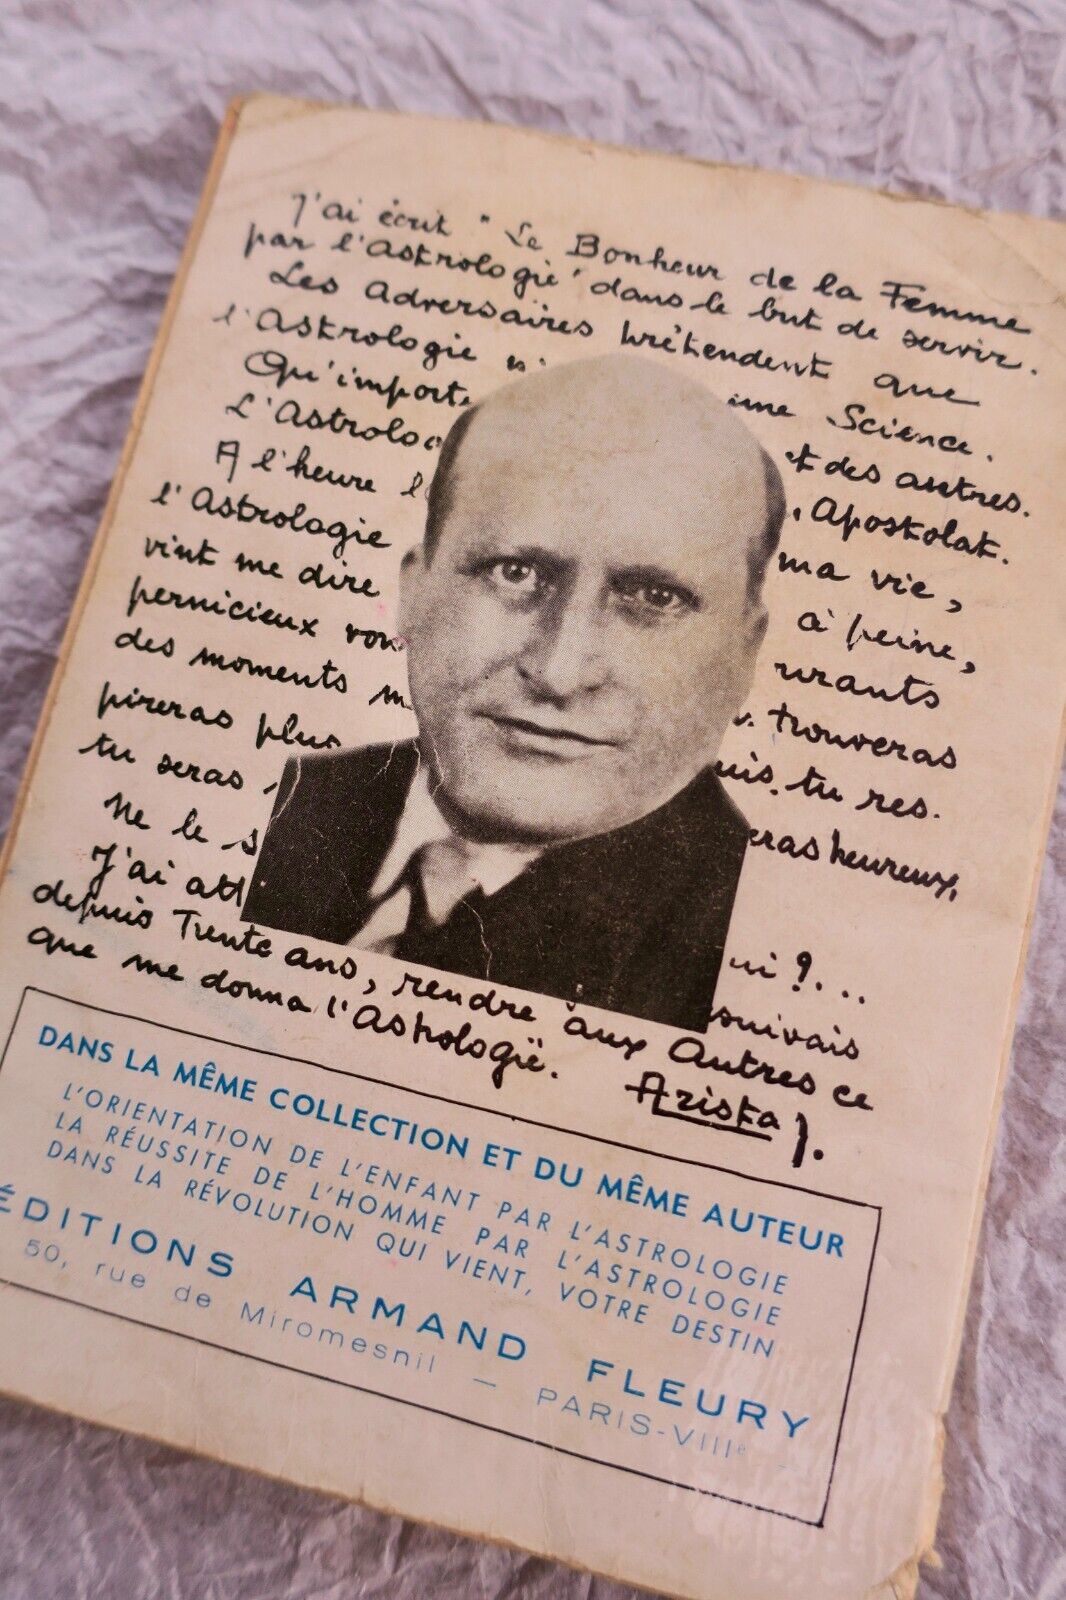 J'ai écrit "Le Bonheur de la Femme
par l'Astrologie" dans le but de servir.
Les Adversaires prétendent que
l'Astrologie une Science.
Qu'importe et des astres.
L'Astrolo , Apostolat.
A l'heure ma vie,
l'Astrologie à peine,
vint me dire
pernicieux trouveras
des moments tu res.
pireras plus eras heureux,
tu seras
Ne le s ui ?...
J'ai att suivais
depuis Trente ans, rendre aux Autres ce
que me donna l'Astrologie. Arista).
DANS LA MÊME COLLECTION ET DU MÊME AUTEUR
L'ORIENTATION DE L'ENFANT PAR L'ASTROLOGIE
LA RÉUSSITE DE L'HOMME PAR L'ASTROLOGIE
DANS LA RÉVOLUTION QUI VIENT, VOTRE DESTIN
ÉDITIONS ARMAND FLEURY
50, rue de Miromesnil — PARIS-VIIIe